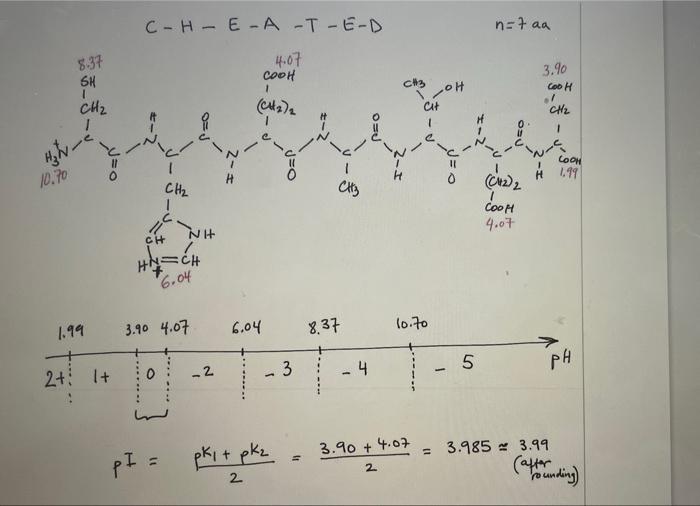 C - H - E - A - T - E - D n = 7 aa
8.37 4.07 3.90
SH COOH CH3 OH COOH
CH2 (CH2)2 CH CH2
H O H O H O
H3N+ C C N C C N C C N C C N C C N C C N C COOH
10.70 O H O H O H 1.99
CH2 CH3 (CH2)2
C COOH
CH NH 4.07
HN+ = CH
6.04
1.99 3.90 4.07 6.04 8.37 10.70
2+ 1+ 0 -2 -3 -4 -5 pH
pI = pK1 + pK2 / 2 = 3.90 + 4.07 / 2 = 3.985 ≈ 3.99
(after rounding)